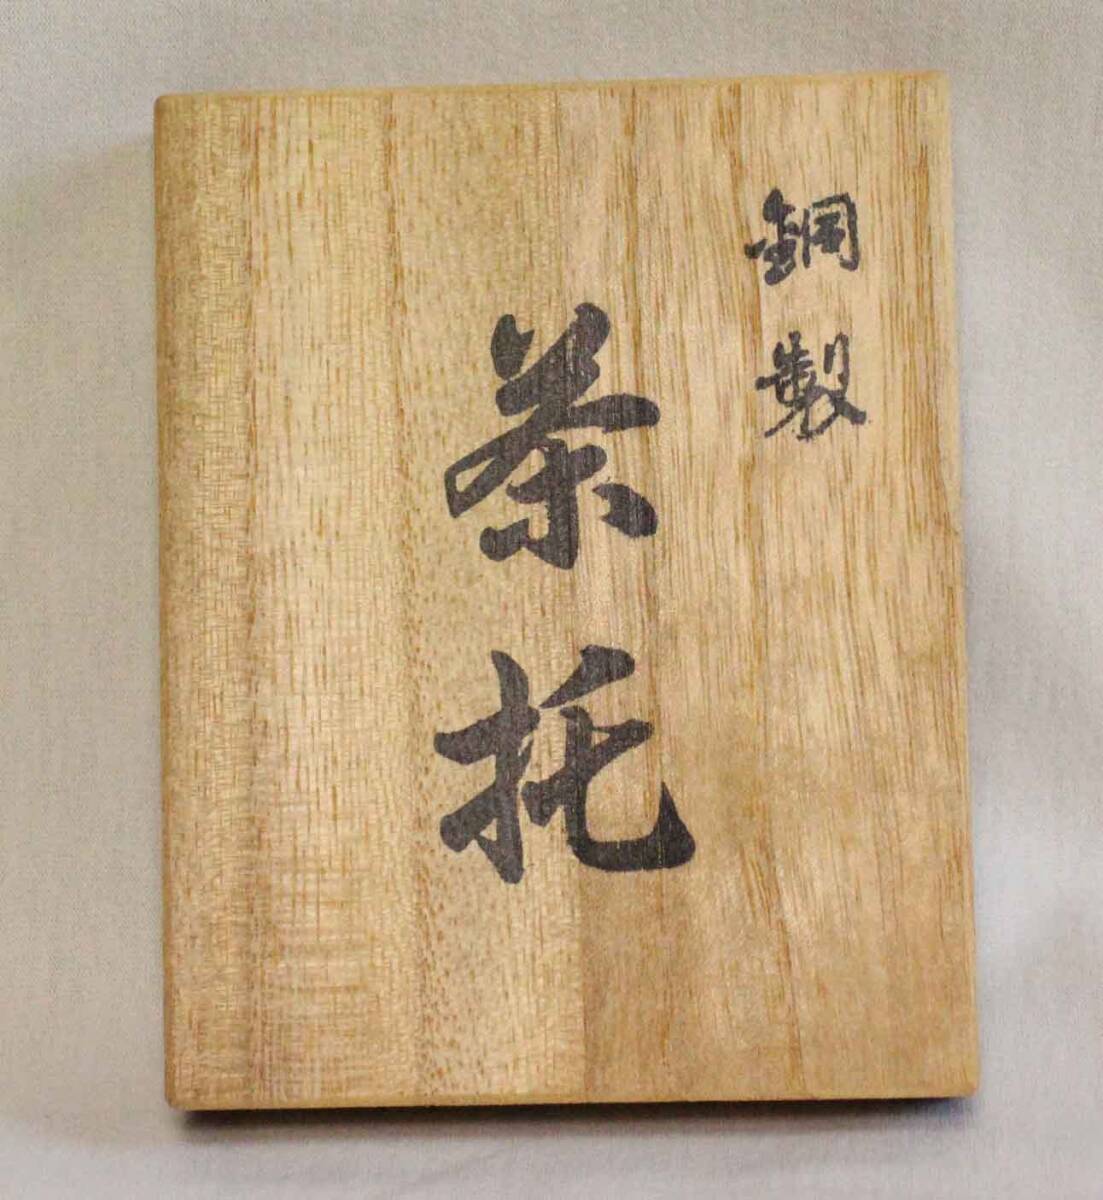 銅製
茶托